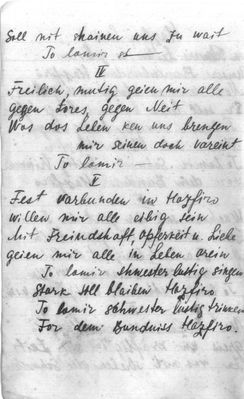 Soll nit shainen uns zu wait
To lomir ot —
IV
Freilich, mutig geien mir alle
gegen Zores, gegen Neit
Was dos Leben ken uns brengen
mir seinen doch vareint
To lomir —
V
Fest varbunden in Hazfiro
willen mir alle eibig sein
Mit Freindshaft, Opferkeit u. Liebe
geien mir alle in Leben arein
To lomir shwester lustig singen
Stark soll blaiben Hazfiro
To lomir schwester lustig trinken
For dem Bundniss Hazfiro.